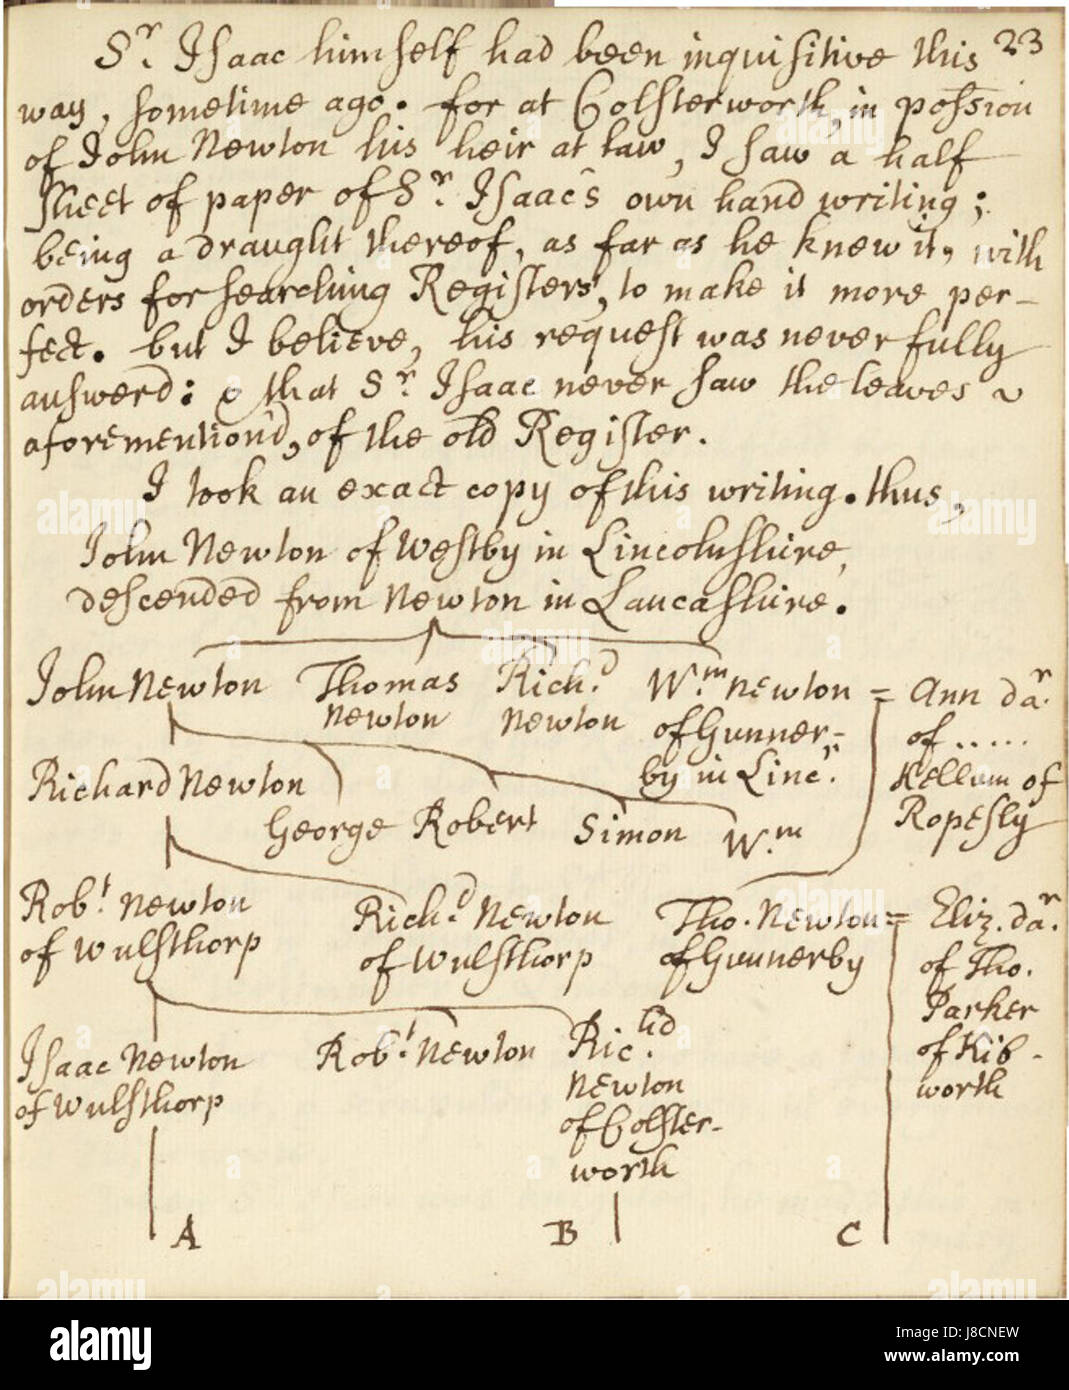 23
Sr. Isaac himself had been inquisitive this
way, sometime ago. for at Colsterworth, in possion
of John Newton his heir at law, I saw a half
sheet of paper of Sr. Isaac's own hand writing;
being a draught thereof, as far as he knew it, with
orders for searching Registers, to make it more per-
fect. but I believe, his request was never fully
answerd: & that Sr. Isaac never saw the leaves
aforemention'd, of the old Register.
I took an exact copy of this writing. thus,
John Newton of Westby in Lincolnshire,
descended from Newton in Lancashire.
John Newton Thomas Newton Richd. Newton Wm. Newton of Gunner-by in Lincr. = Ann dar. of ..... Kellum of Ropesly
Richard Newton George Robert Simon Wm.
Robt. Newton of Wulsthorp Richd. Newton of Wulsthorp Tho. Newton of Gunnerby = Eliz. dar. of Tho. Parker of Kib-worth
Isaac Newton of Wulsthorp Robt. Newton Richd. Newton of Colster-worth
A B C
alamy
Image ID: J8CNEW
www.alamy.com